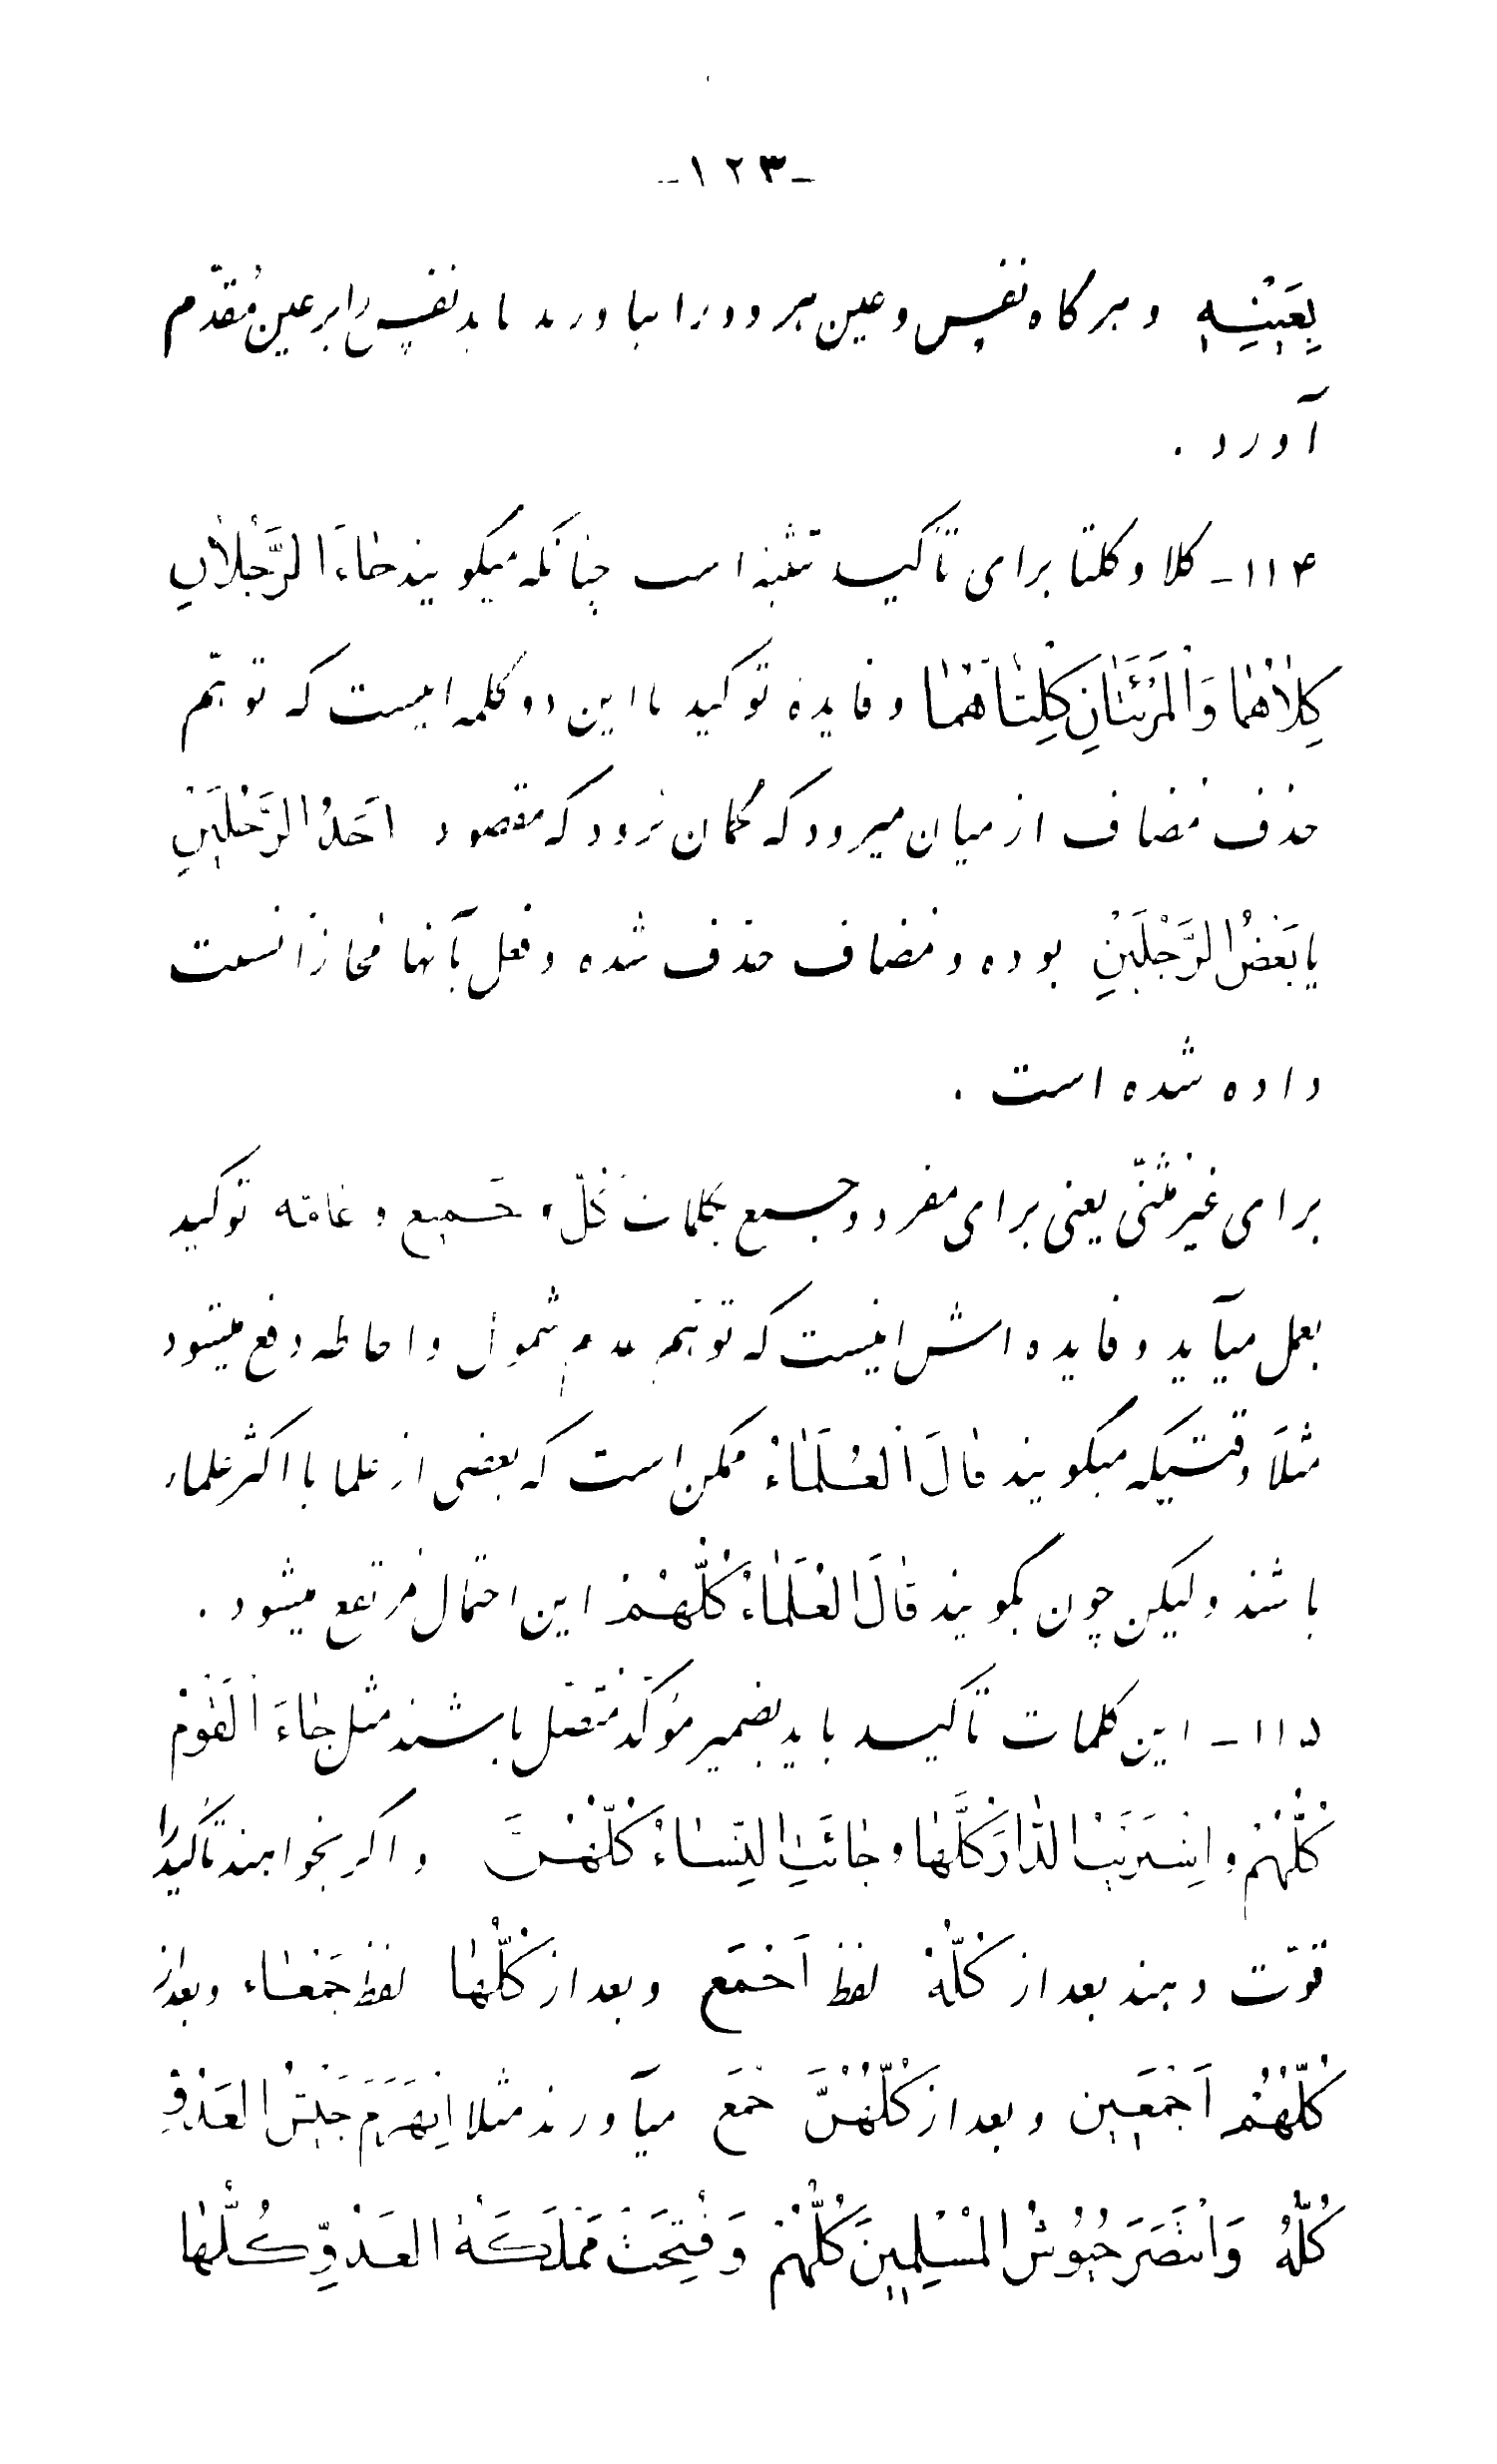 -۱۲۳-
بِعَیْنِهِ و هرگاه نفس و عین هر دو را بیاورند باید نفس را بر عین مُقدّم
آورد .
۱۱۴ـ کلا و کلتا برای تأکید تثنیه است چنانکه میگویند جٰاءَ الرَّجُلاٰنِ
کِلاٰهُمٰا وَالْمَرْئَتٰانِ کِلْتٰاهُمٰا و فایدهٔ توکید با این دو کلمه اینست که توهّم
حذف مضاف از میان میرود که گمان نرود که مقصود اَحَدُ الرَّجُلَیْنِ
یا بَعْضُ الرَّجُلَیْنِ بوده و مضاف حذف شده و فعل بآنها مجازاً نسبت
داده شده است .
برای غیر مثنّی یعنی برای مفرد و جمع بکلمات کُلّ و جَمیع و عامّه توکید
بعمل میآید و فایده اش اینست که توهّم عدم شمول و احاطه دفع میشود
مثلاً وقتیکه میگویند قٰالَ الْعُلَمٰاءُ ممکن است که بعضی از علما یا اکثر علماء
باشند ولیکن چون بگویند قٰالَ الْعُلَمٰاءُ کُلُّهُمْ این احتمال مرتفع میشود .
۱۱۵ـ این کلمات تأکید باید بضمیر مؤکَّد متّصل باشند مثل جٰاءَ الْقَوْمُ
کُلُّهُمْ و اِشْتَرَیْتُ الدّٰارَ کُلَّهٰا و جٰائَتِ النِّسٰاءُ کُلُّهُنَّ و اگر بخواهند تأکید را
قوّت دهند بعد از کُلُّهُ لفظ اَجْمَع و بعد از کُلُّهٰا لفظ جَمْعٰاء و بعد از
کُلُّهُمْ اَجْمَعین و بعد از کُلُّهُنَّ جُمَع میآورند مثلا اِنْهَزَمَ جَیْشُ العَدُوِّ
کُلُّهُ وَ انْتَصَرَ جُیُوشُ الْمُسْلِمینَ کُلُّهُمْ وَ فُتِحَتْ مَمْلَکَةُ العَدُوِّ کُلُّهٰا